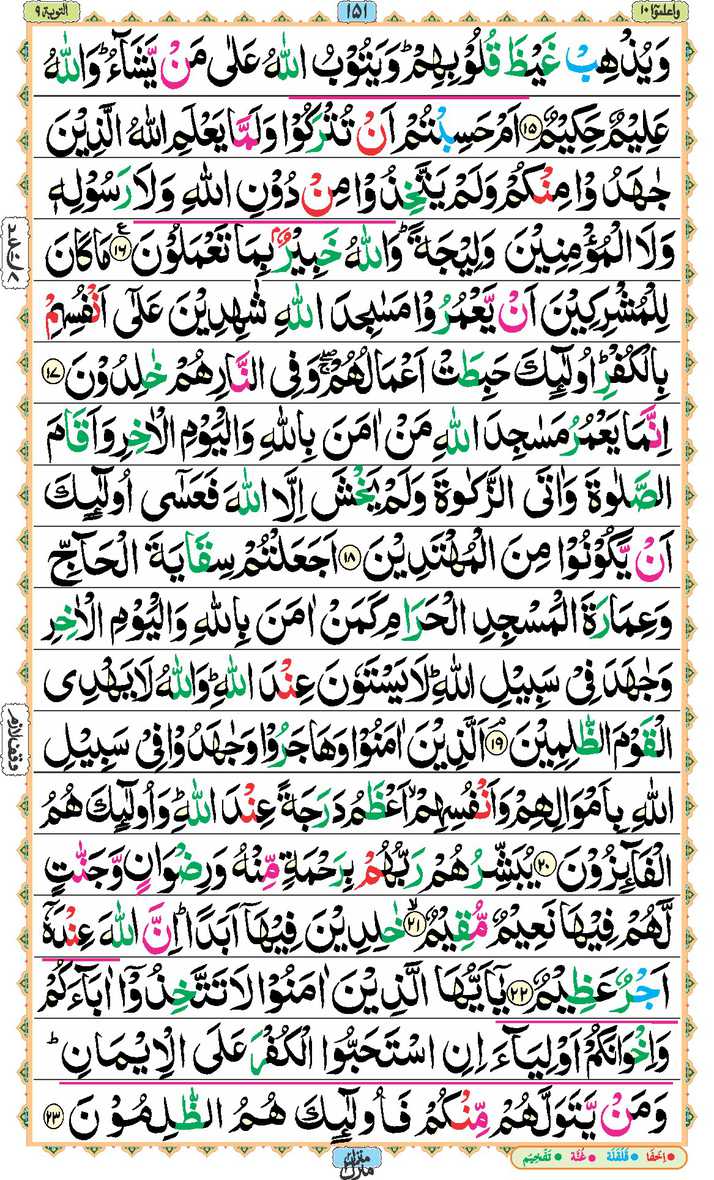 واعلموۤا ١٠
١٥١
التوبة ٩
وَيُذْهِبْ غَيْظَ قُلُوْبِهِمْ ؕ وَيَتُوْبُ اللّٰهُ عَلٰى مَنْ يَّشَآءُ ؕ وَاللّٰهُ
عَلِيْمٌ حَكِيْمٌ ١٥ اَمْ حَسِبْتُمْ اَنْ تُتْرَكُوْا وَلَمَّا يَعْلَمِ اللّٰهُ الَّذِيْنَ
جٰهَدُوْا مِنْكُمْ وَلَمْ يَتَّخِذُوْا مِنْ دُوْنِ اللّٰهِ وَلَا رَسُوْلِهٖ
وَلَا الْمُؤْمِنِيْنَ وَلِيْجَةً ؕ وَاللّٰهُ خَبِيْرٌۢ بِمَا تَعْمَلُوْنَ ١٦ مَا كَانَ
لِلْمُشْرِكِيْنَ اَنْ يَّعْمُرُوْا مَسٰجِدَ اللّٰهِ شٰهِدِيْنَ عَلٰٓى اَنْفُسِهِمْ
بِالْكُفْرِ ؕ اُولٰٓئِكَ حَبِطَتْ اَعْمَالُهُمْ ۖۚ وَفِى النَّارِ هُمْ خٰلِدُوْنَ ١٧
اِنَّمَا يَعْمُرُ مَسٰجِدَ اللّٰهِ مَنْ اٰمَنَ بِاللّٰهِ وَالْيَوْمِ الْاٰخِرِ وَاَقَامَ
الصَّلٰوةَ وَاٰتَى الزَّكٰوةَ وَلَمْ يَخْشَ اِلَّا اللّٰهَ فَعَسٰٓى اُولٰٓئِكَ
اَنْ يَّكُوْنُوْا مِنَ الْمُهْتَدِيْنَ ١٨ اَجَعَلْتُمْ سِقَايَةَ الْحَآجِّ
وَعِمَارَةَ الْمَسْجِدِ الْحَرَامِ كَمَنْ اٰمَنَ بِاللّٰهِ وَالْيَوْمِ الْاٰخِرِ
وَجٰهَدَ فِىْ سَبِيْلِ اللّٰهِ ؕ لَا يَسْتَوٗنَ عِنْدَ اللّٰهِ ؕ وَاللّٰهُ لَا يَهْدِى
الْقَوْمَ الظّٰلِمِيْنَ ۘ ١٩ اَلَّذِيْنَ اٰمَنُوْا وَهَاجَرُوْا وَجٰهَدُوْا فِىْ سَبِيْلِ
اللّٰهِ بِاَمْوَالِهِمْ وَاَنْفُسِهِمْ ۙ اَعْظَمُ دَرَجَةً عِنْدَ اللّٰهِ ؕ وَاُولٰٓئِكَ هُمُ
الْفَآئِزُوْنَ ٢٠ يُبَشِّرُهُمْ رَبُّهُمْ بِرَحْمَةٍ مِّنْهُ وَرِضْوَانٍ وَّجَنّٰتٍ
لَّهُمْ فِيْهَا نَعِيْمٌ مُّقِيْمٌ ۙ ٢١ خٰلِدِيْنَ فِيْهَآ اَبَدًا ؕ اِنَّ اللّٰهَ عِنْدَهٗٓ
اَجْرٌ عَظِيْمٌ ٢٢ يٰٓاَيُّهَا الَّذِيْنَ اٰمَنُوْا لَا تَتَّخِذُوْٓا اٰبَآءَكُمْ
وَاِخْوَانَكُمْ اَوْلِيَآءَ اِنِ اسْتَحَبُّوا الْكُفْرَ عَلَى الْاِيْمَانِ ؕ
وَمَنْ يَّتَوَلَّهُمْ مِّنْكُمْ فَاُولٰٓئِكَ هُمُ الظّٰلِمُوْنَ ٢٣
● اِخْفَا ● قَلْقَلَة ● غُنَّة ● تَفْخِيْم